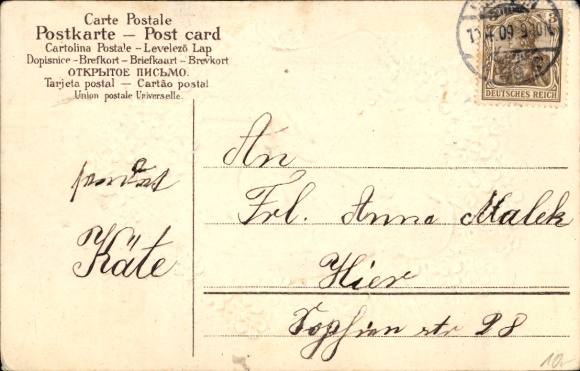 Carte Postale
Postkarte — Post card
Cartolina Postale – Levelező Lap
Dopisnice – Brefkort – Briefkaart – Brevkort
ОТКРЫТОЕ ПИСЬМО.
Tarjeta postal — Cartão postal
Union postale Universelle.
3
DEUTSCHES REICH
Käte
An
Frl. Anna Malek
Hier
Sophien str 28
10.-